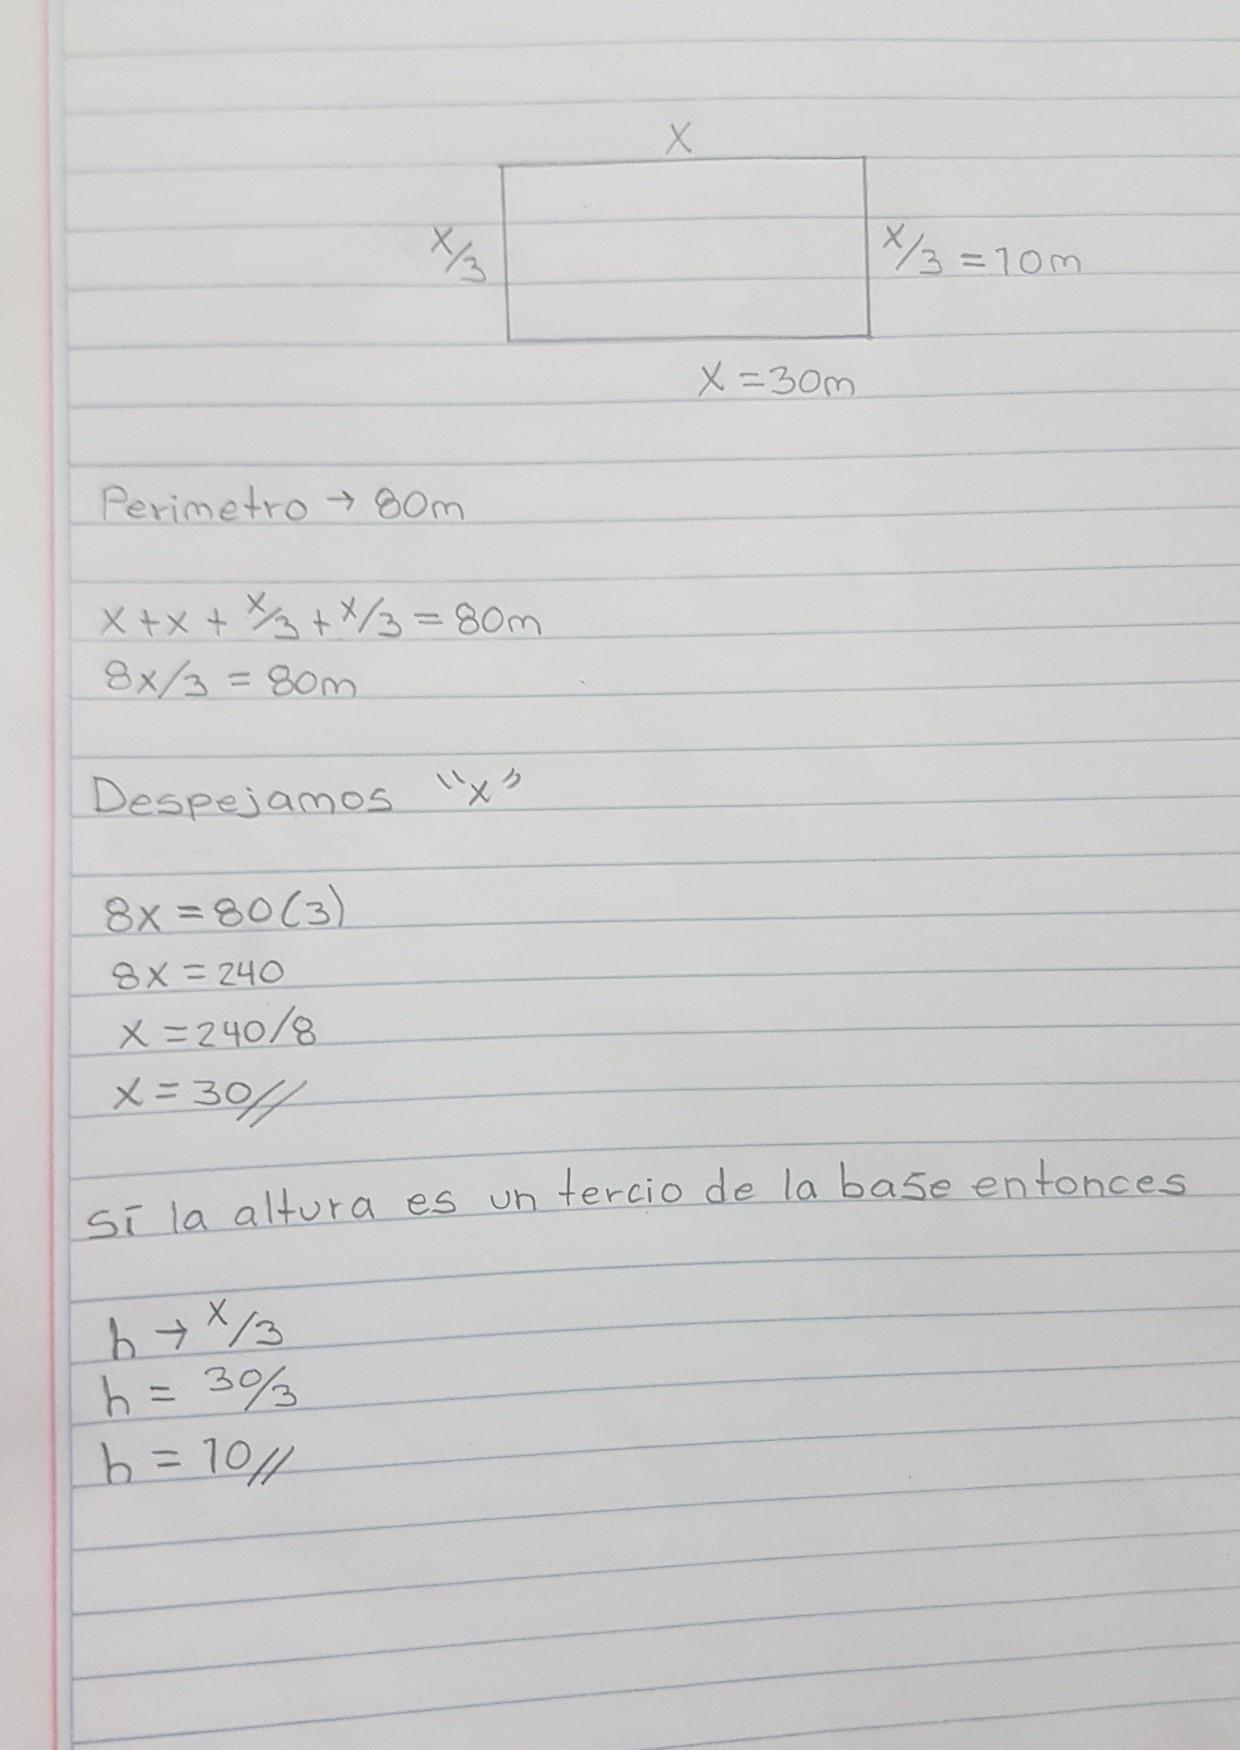 X
x/3
x/3 = 10m
X = 30m
Perimetro → 80m
x + x + x/3 + x/3 = 80m
8x/3 = 80m
Despejamos "x"
8x = 80(3)
8x = 240
x = 240/8
x = 30//
Si la altura es un tercio de la base entonces
h → x/3
h = 30/3
h = 10//